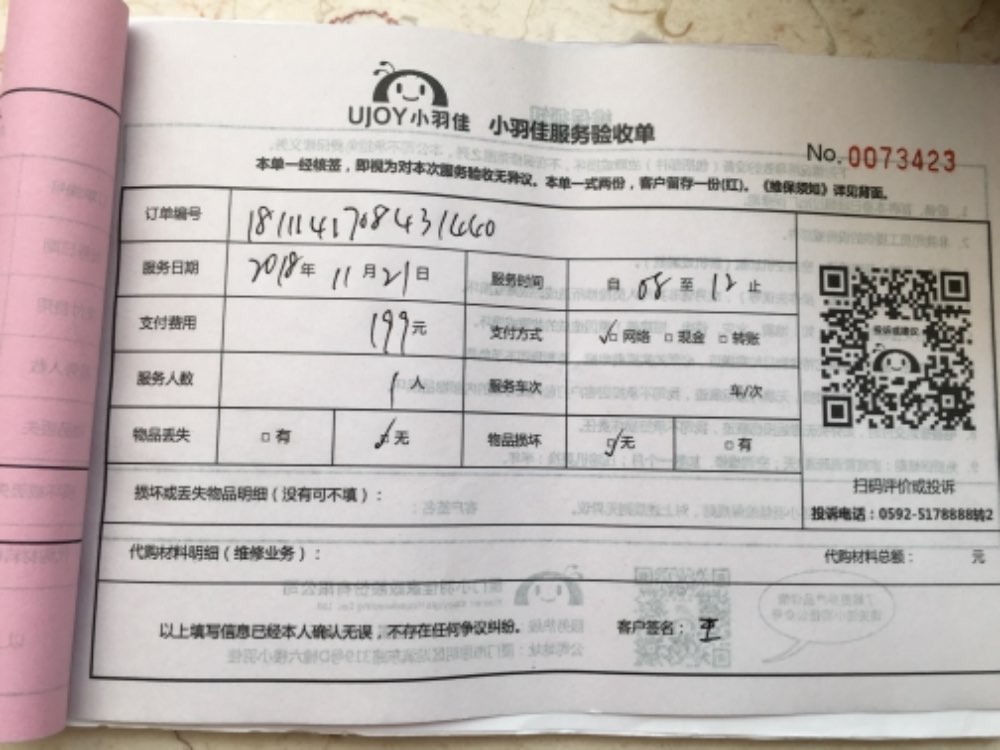 UJOY小羽佳 小羽佳服务验收单
No. 0073423
本单一经核签，即视为对本次服务验收无异议。本单一式两份，客户留存一份(红)。《维保须知》详见背面。
订单编号 1811141708431440
服务日期 2018年 11月21日 服务时间 自 08 至 12 止
支付费用 199元 支付方式 ☑网络 □现金 □转账
投诉或建议
服务人数 1人 服务车次 车/次
物品丢失 □有 ☑无 物品损坏 ☑无 □有
损坏或丢失物品明细（没有可不填）：
扫码评价或投诉
投诉电话：0592-5178888转2
代购材料明细（维修业务）： 代购材料总额： 元
以上填写信息已经本人确认无误，不存在任何争议纠纷。 客户签名：